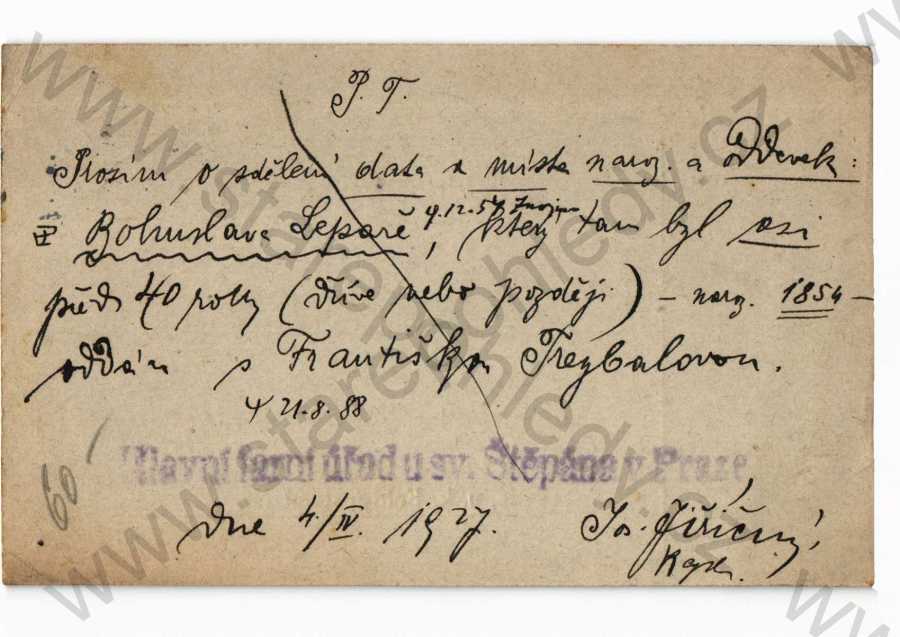 P. T.
Prosím o sdělení data a místa naroz. a oddavek:
Bohuslava Lepaře, který tam byl asi
9.12.54 Znojmo
před 40 roky (dříve nebo později) – naroz. 1854 –
oddán s Františkou Treybalovou.
21.8.88
Hlavní farní úřad u sv. Štěpána v Praze
60
dne 4./IV. 1927. Jos. Jiřičný,
www.starepohledy.cz